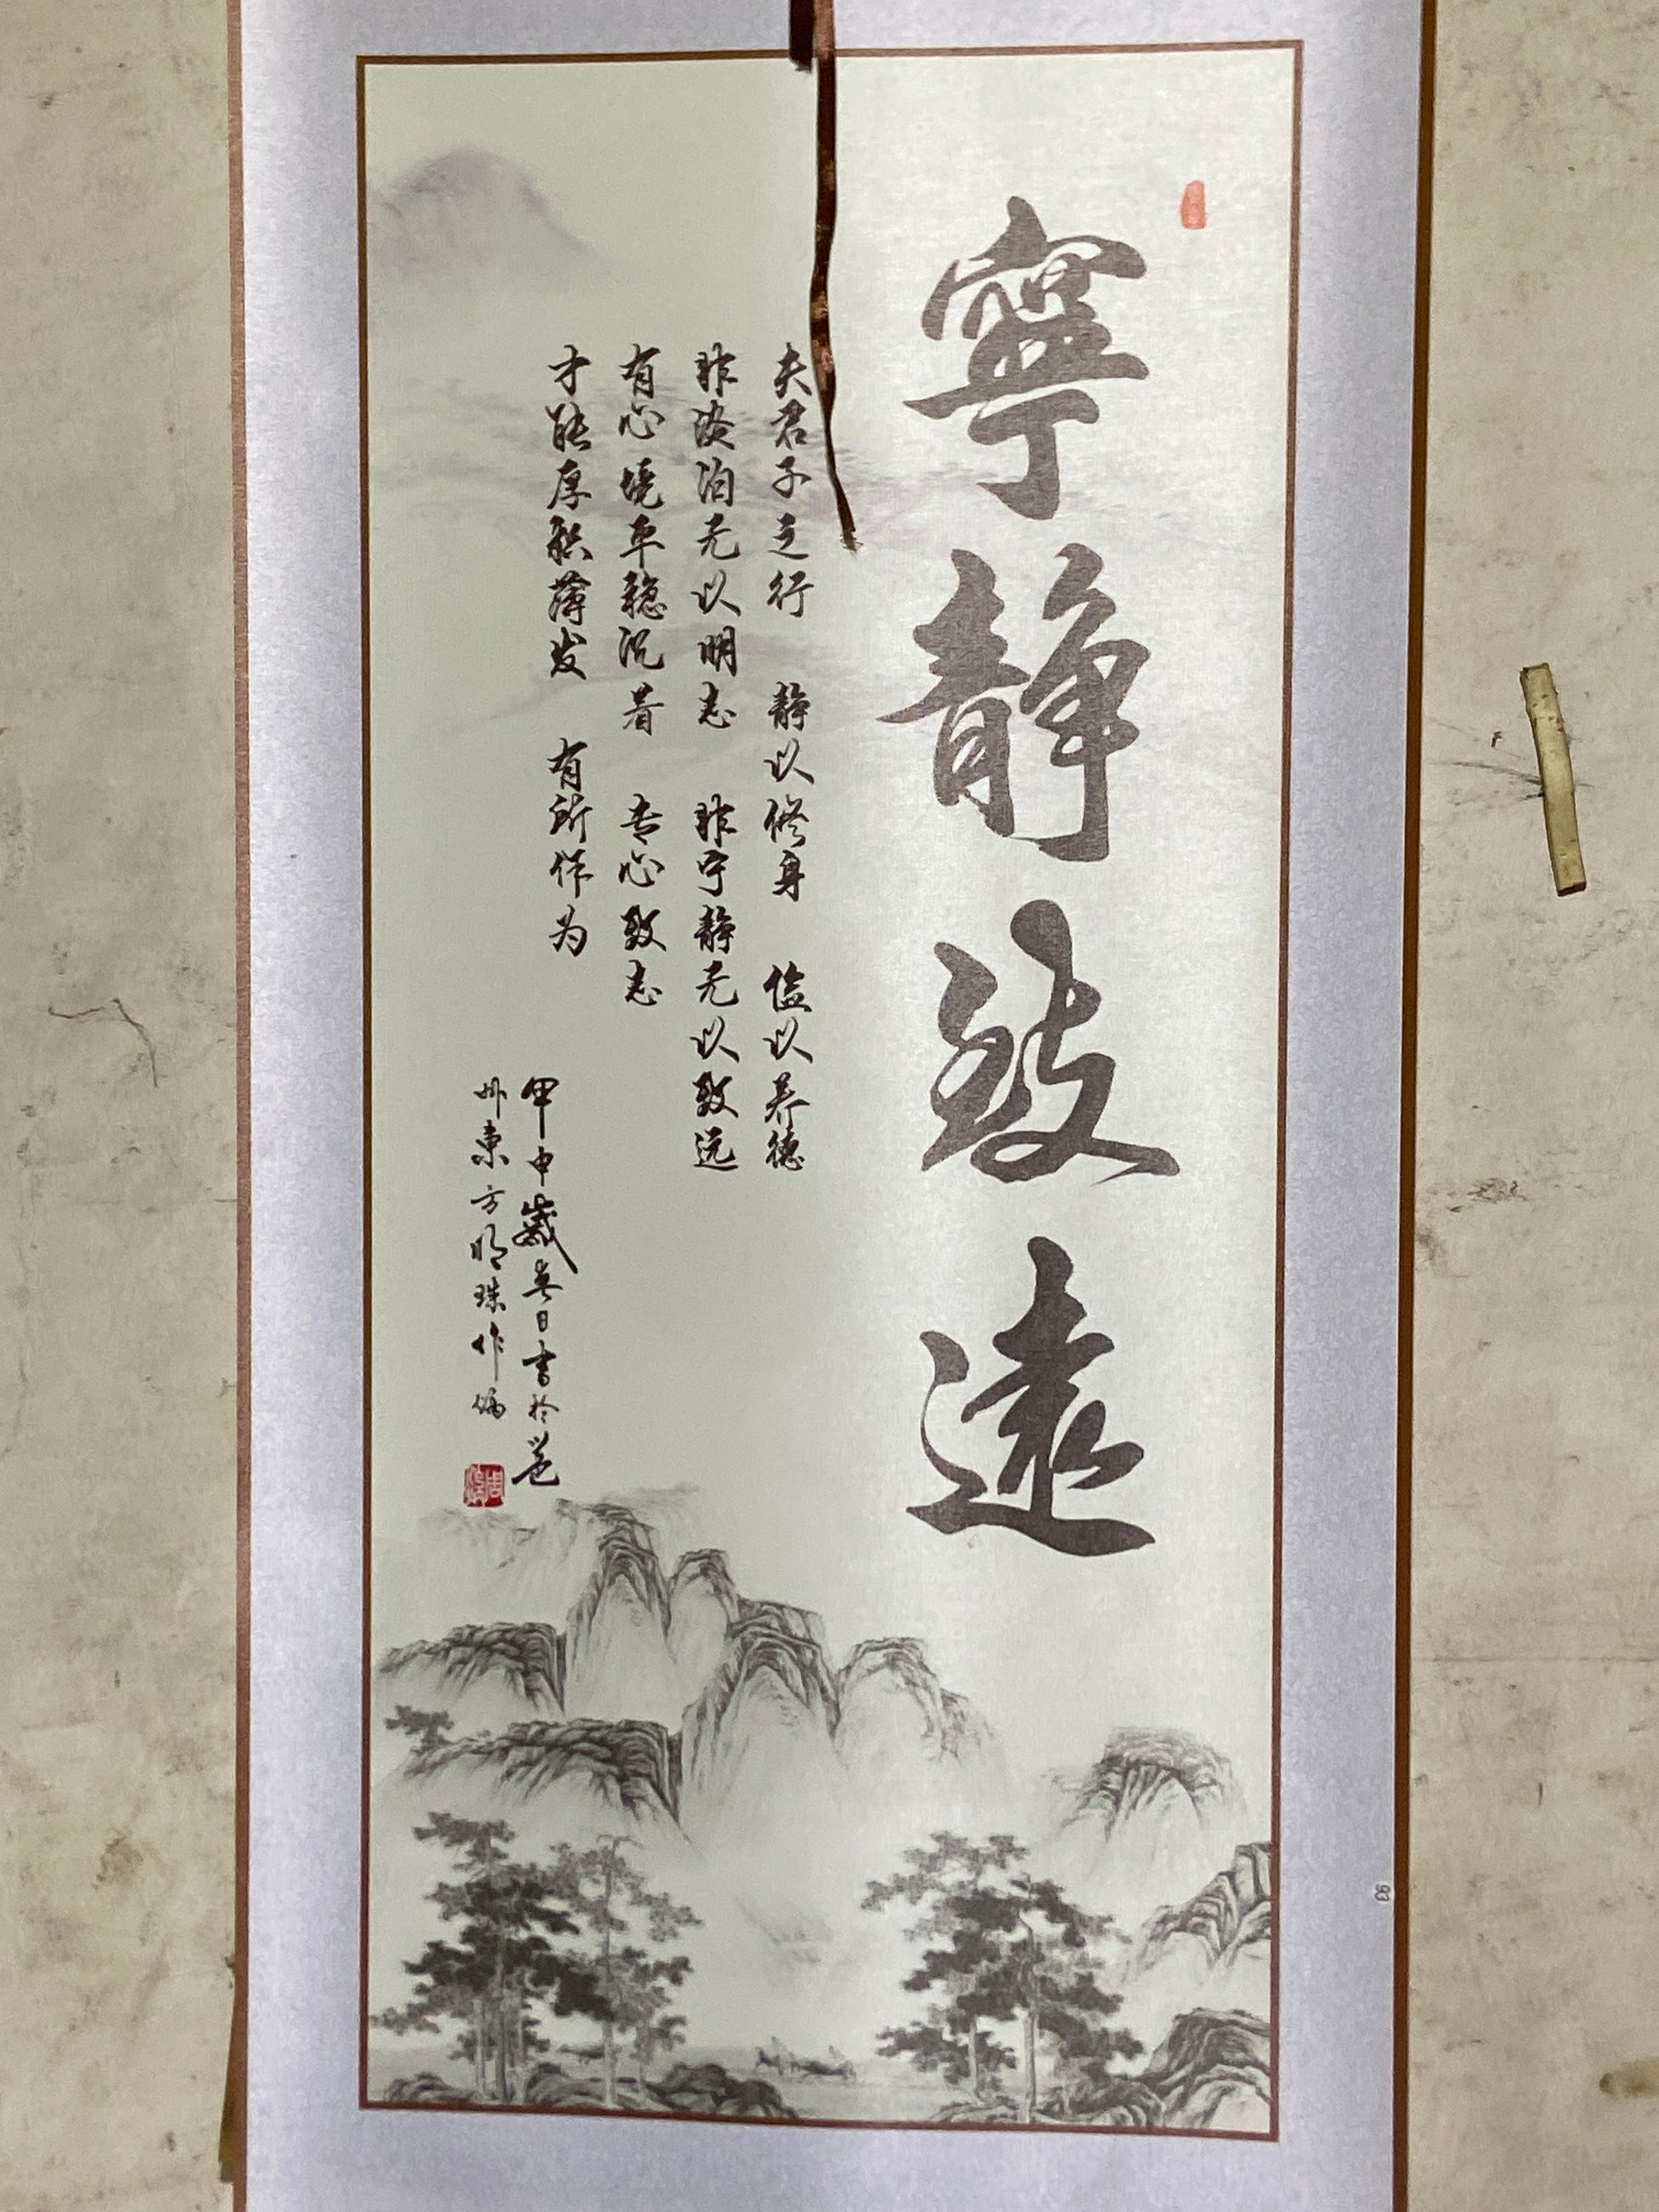 寧靜致遠
夫君子之行 静以修身 俭以养德
非淡泊无以明志 非宁静无以致远
有心境平稳沉着 专心致志
才能厚积薄发 有所作为
甲申歲春日書於
州東方明珠作
93